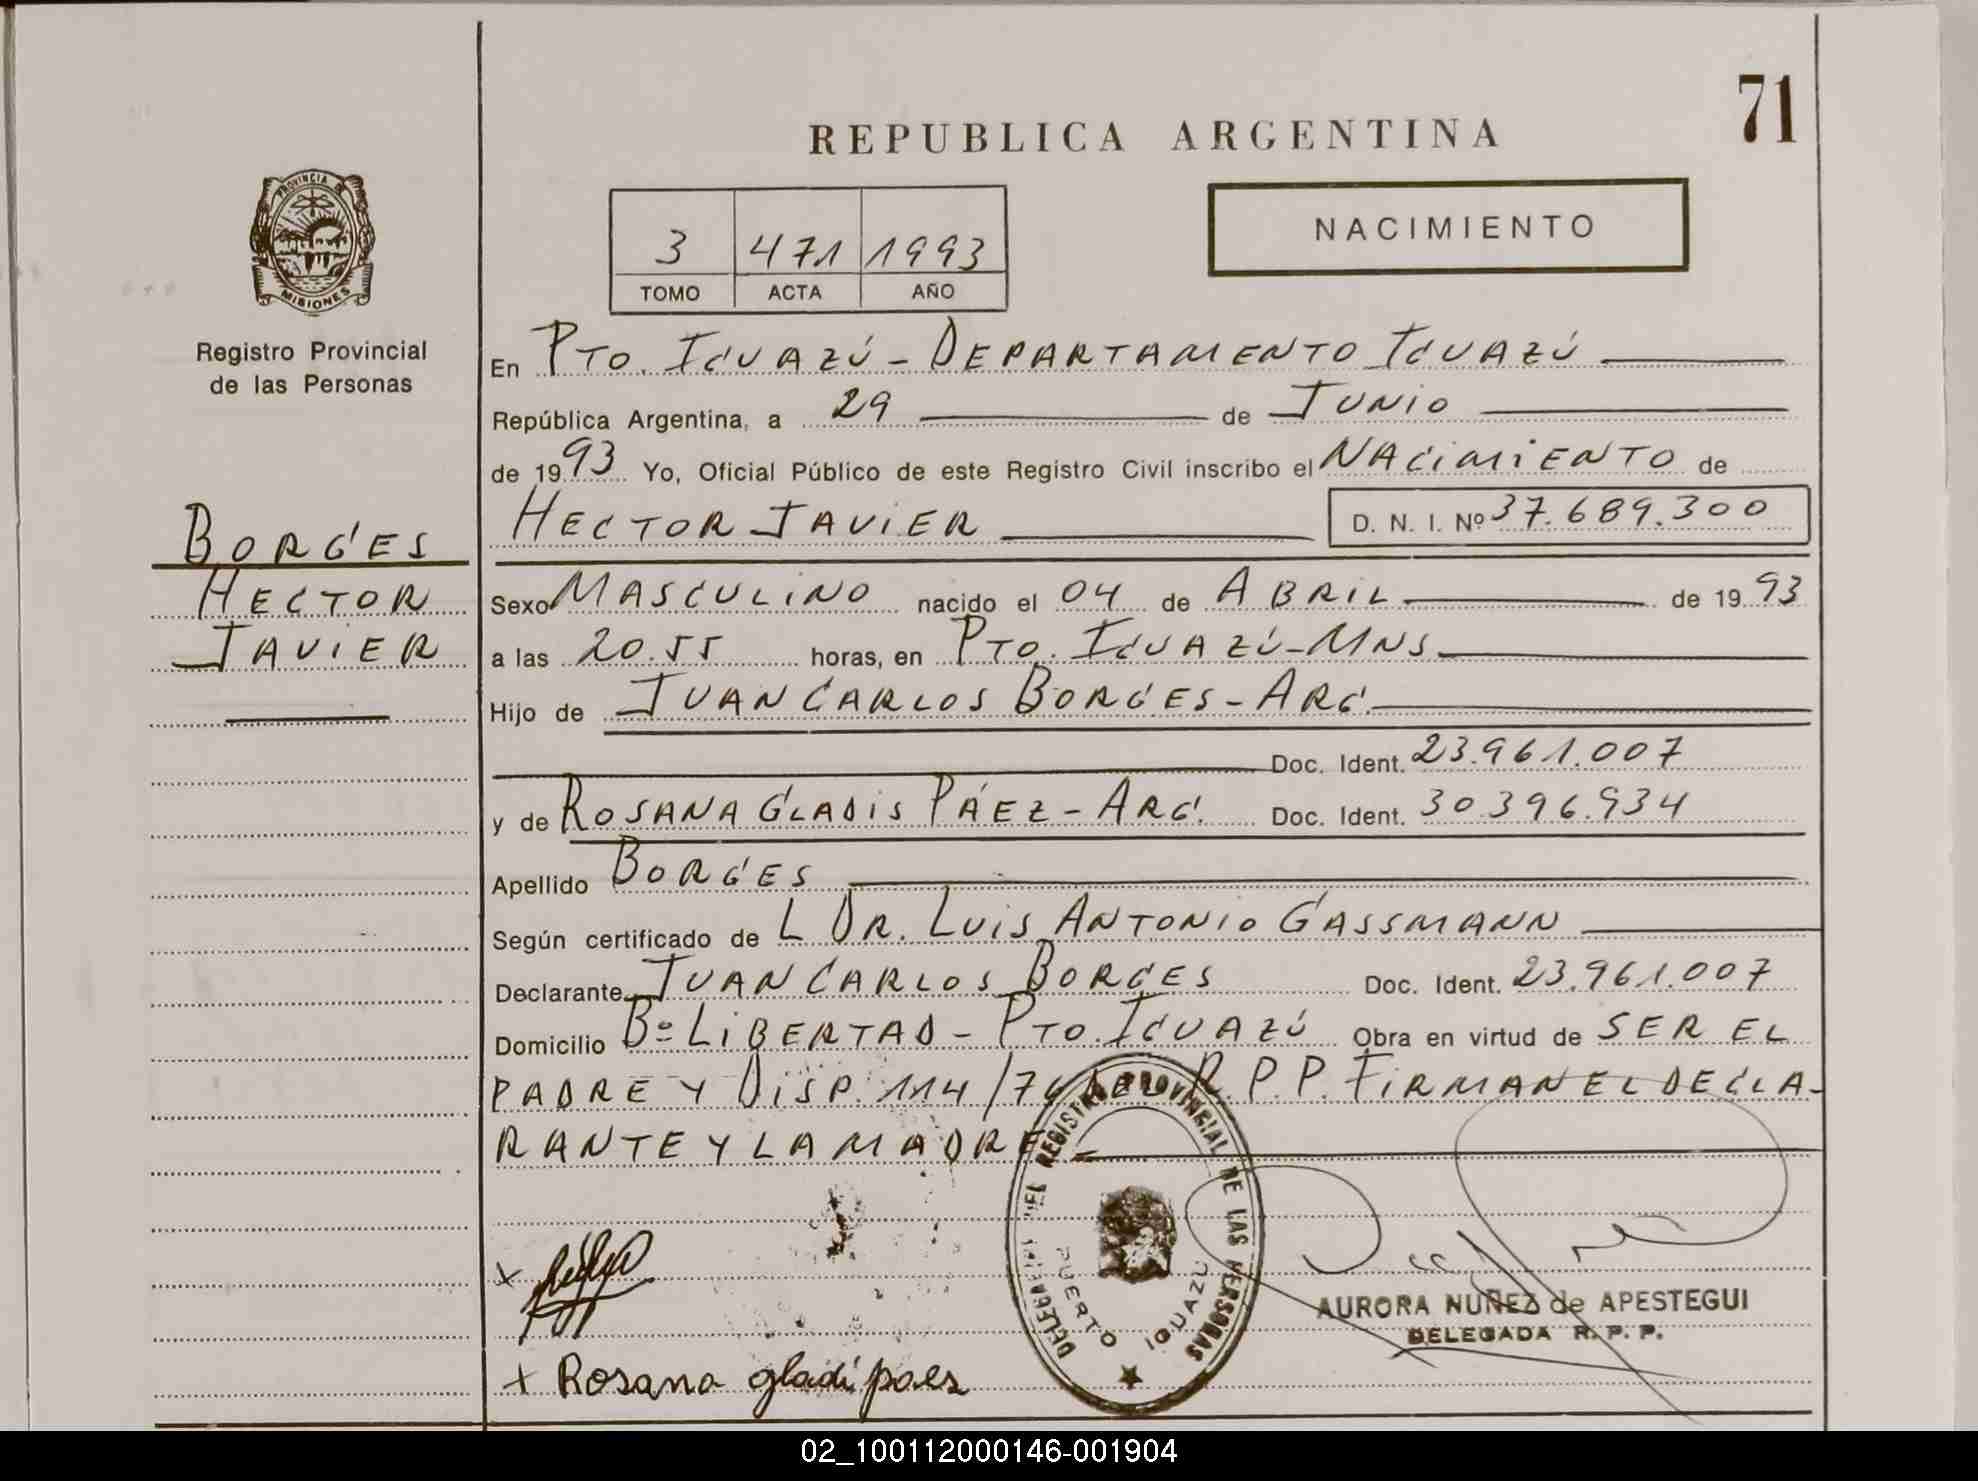 71
REPUBLICA ARGENTINA
NACIMIENTO
3 471 1993
TOMO ACTA AÑO
PROVINCIA DE
MISIONES
Registro Provincial
de las Personas
BORGES
HECTOR
JAVIER
En PTO. IGUAZÚ - DEPARTAMENTO IGUAZÚ
República Argentina, a 29 de JUNIO
de 1993 Yo, Oficial Público de este Registro Civil inscribo el NACIMIENTO de
HECTOR JAVIER D. N. I. Nº 37.689.300
Sexo MASCULINO nacido el 04 de ABRIL de 1993
a las 20.55 horas, en PTO. IGUAZÚ - MNS
Hijo de JUAN CARLOS BORGES - ARG.
Doc. Ident. 23.961.007
y de ROSANA GLADIS PÁEZ - ARG. Doc. Ident. 30.396.934
Apellido BORGES
Según certificado de L DR. LUIS ANTONIO GASSMANN
Declarante JUAN CARLOS BORGES Doc. Ident. 23.961.007
Domicilio Bº LIBERTAD - PTO. IGUAZÚ Obra en virtud de SER EL
PADRE Y DISP. 114/76 DEL R.P.P. FIRMAN EL DECLA-
RANTE Y LA MADRE
DELEGACION DEL REGISTRO PROVINCIAL DE LAS PERSONAS
PUERTO IGUAZU
AURORA NUÑEZ de APESTEGUI
DELEGADA R. P. P.
x
x Rosana gladi paez
02_100112000146-001904